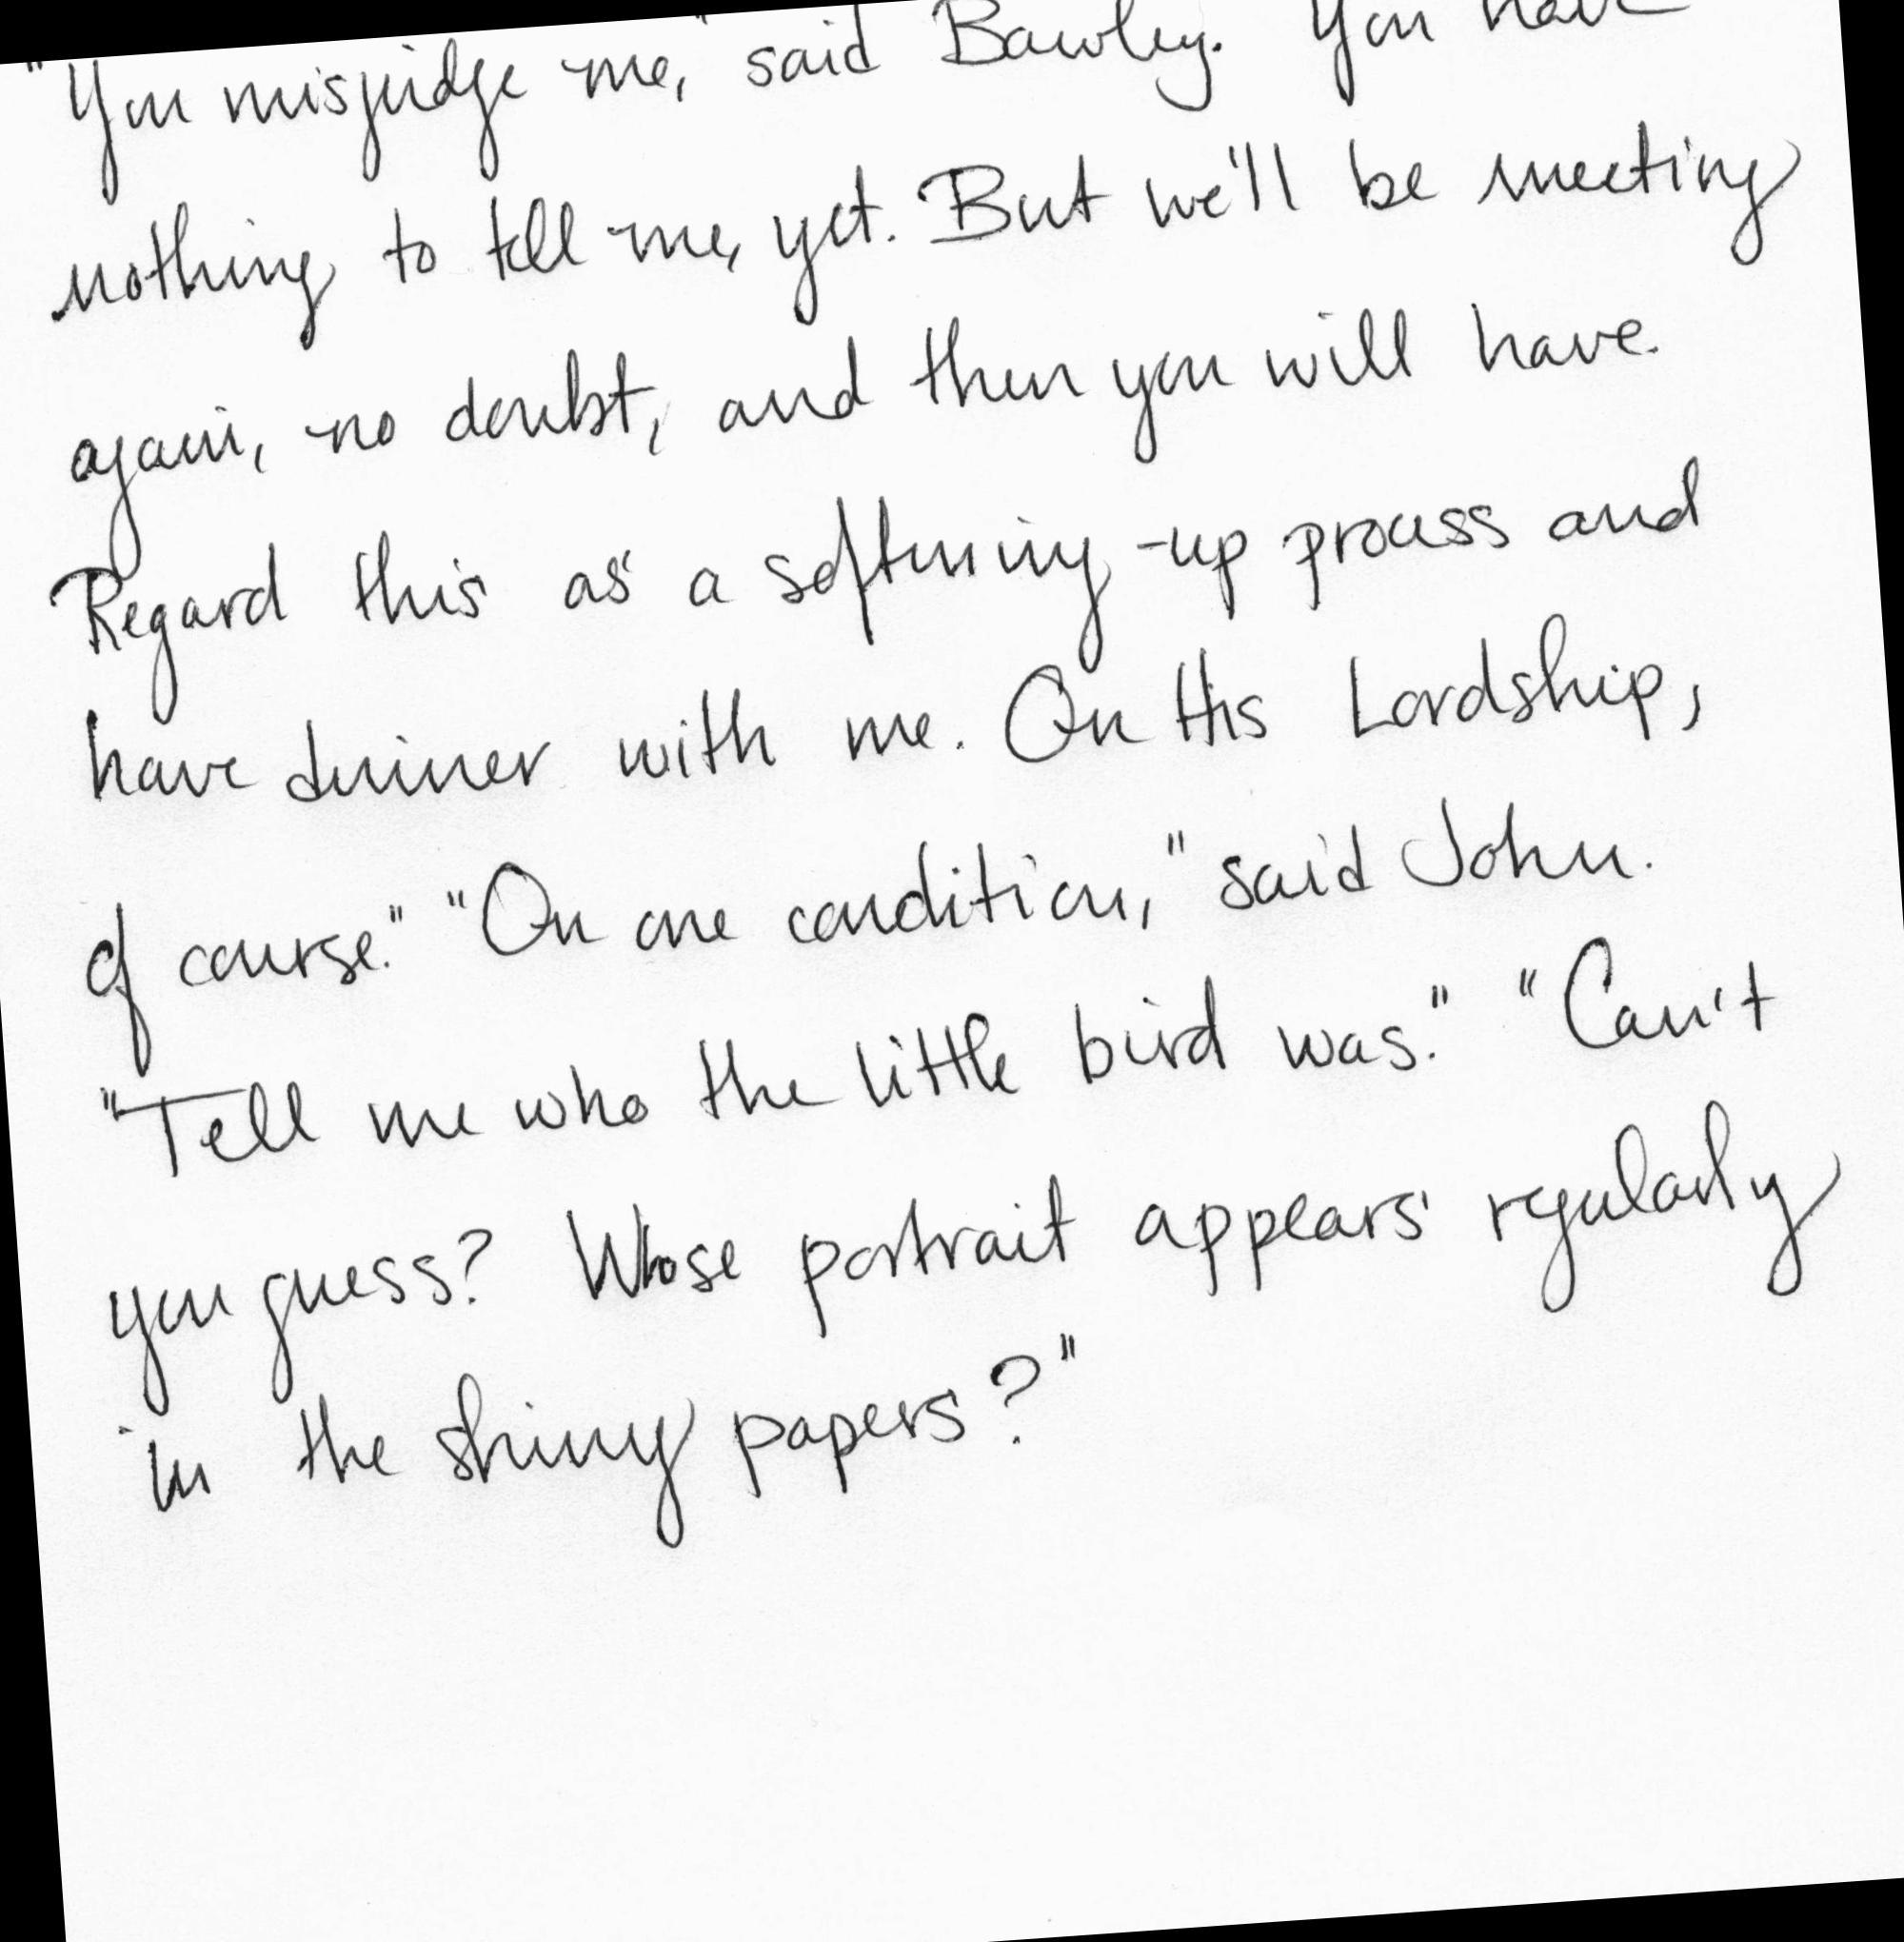 "You misjudge me," said Bawley. You have
nothing to tell me, yet. But we'll be meeting
again, no doubt, and then you will have.
Regard this as a softening-up process and
have dinner with me. On His Lordship,
of course." "On one condition," said John.
"Tell me who the little bird was." "Can't
you guess? Whose portrait appears regularly
in the shiny papers?"